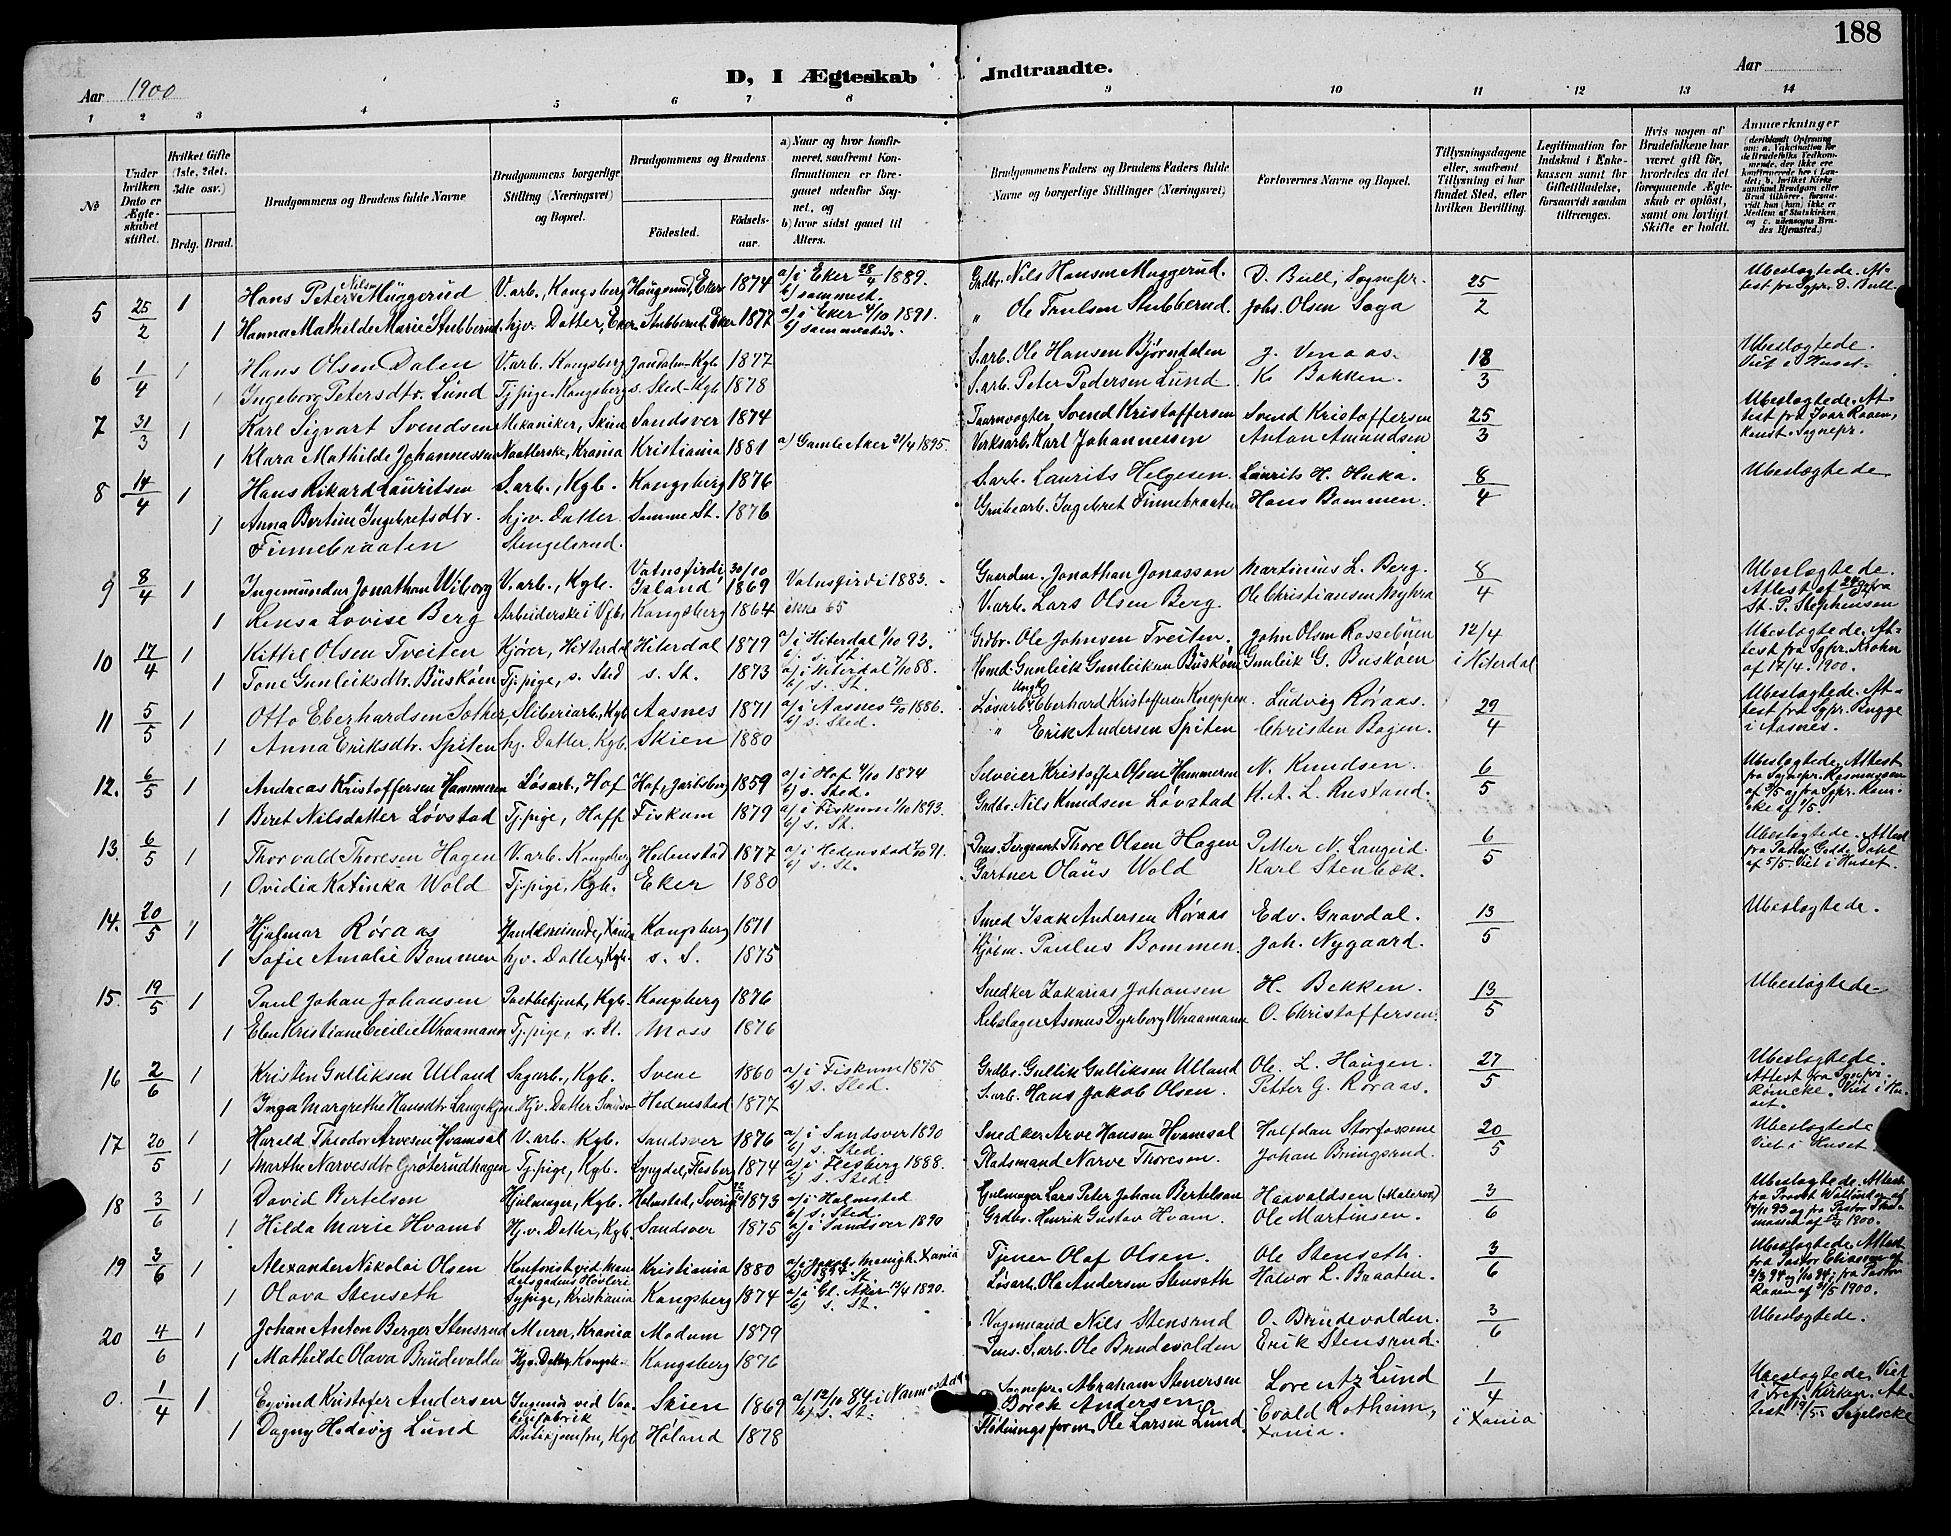 188
Aar 1900
D, I Ægteskab Indtraadte.
Aar
1 2 3 4 5 6 7 8 9 10 11 12 13 14
№
Under hvilken Dato er Ægteskabet stiftet.
Hvilket Gifte (1ste, 2det, 3die osv.)
Brdg. Brud.
Brudgommens og Brudens fulde Navne
Brudgommens borgerlige Stilling (Næringsvei) og Bopæl.
Brudgommens og Brudens
Fødested. Fødselsaar.
a) Naar og hvor konfirmeret, saafremt Konfirmationen er foregaaet udenfor Sognet, og
b) hvor sidst gaaet til Alters.
Brudgommens Faders og Brudens Faders fulde Navne og borgerlige Stillinger (Næringsvei)
Forlovernes Navne og Bopæl.
Tillysningsdagene eller, saafremt Tillysning ei har fundet Sted, efter hvilken Bevilling.
Legitimation for Indskud i Enkekassen samt for Giftetilladelse, forsaavidt saadan tiltrænges.
Hvis nogen af Brudefolkene har været gift før, hvorledes da det foregaaende Ægteskab er opløst, samt om lovligt Skifte er holdt.
Anmærkninger
5 25/2 1 Hans Peter Nilsen Müggerud V.arb., Kongsberg Haugsund, Eker 1874 a/ i Eker 28/4 1889. b/ sammest. Grdbr. Nils Hansen Muggerud. D. Bull, Sognepr. 25/2 Ubeslægtede. Attest fra Sgpr. D. Bull.
1 Hanna Mathilde Marie Stubberud hjv. Datter, Eker Stubberud, Eker 1877 a/ i Eker 4/10 1891. b/ sammesteds. " Ole Trulsen Stubberud. Johs. Olsen Saga
6 1/4 1 Hans Olsen Dalen V.arb. Kongsberg Jondalen Kgb. 1877 S.arb. Ole Hansen Bjørndalen J. Venaas. 18/3 Ubeslægtede. Viet i Huset.
1 Ingeborg Petersdtr. Lund Tj.pige. Kongsberg s. Sted. Kgb. 1878 S.arb. Peter Pedersen Lund K. Bakken.
7 31/3 1 Karl Sigvart Svendsen Mekaniker, Skien Sandsver 1874 Taarnvogter Svend Kristoffersen Svend Kristoffersen 25/3 Ubeslægtede. Attest fra Ivar Raaen, Konst. Sognepr.
1 Klara Mathilde Johannessen Naatlerske, Krania Kristiania 1881 a/ Gamle Aker 21/4 1895. Verksarb. Karl Johannessen Anton Amundsen
8 14/4 1 Hans Rikard Lauritsen S.arb., Kgb. Kongsberg 1876 S.arb. Laurits Helgesen Laurits H. Huka. 8/4 Ubeslægtede
1 Anna Bertine Ingebretsdtr. Finnebraaten hjv. Datter. Stengelsrud. Samme St. 1876 Grubearb. Ingebret Finnebraaten Hans Bommen.
9 8/4 1 Ingemundur Jonathan Wiborg V.arb., Kgb. Vatnsfirdi Island 30/10 1869 Vatnsfirdi 1883. Gaardm. Jonathan Jonasson Martinius L. Berg. 8/4 Ubeslægtede. Attest af fra St. P. Stephensen
1 Rensa Lovise Berg Arbeiderske i Vfbr. Kongsberg 1864 V.arb. Lars Olsen Berg. Ole Christiansen Myhra
10 17/4 1 Kittil Olsen Tveiten Kjører, Hitterdal Hiterdal 1879 a/ i Hiterdal 1/10 93. b/ s. St. Grdbr. Ole Johnsen Treiten. John Olsen Rossebüen 12/4 Ubeslægtede. Attest fra Sgpr. Krohn af 17/4. 1900.
1 Tone Gunleiksdtr. Büskøen Tj.pige, s. Sted s. St. 1873 a/ i Hiterdal 7/10 88. b/ s. St. Hsmd. Gunleik Gunleiksen Büskøen Gunleik G. Buskøen i Hiterdal
11 5/5 1 Otto Eberhardsen Sother Sliberiarb., Kgb Aasnes 1871 a/ i Aasnes 10/10 1886. b/ s. Sted. Løsarb. Eberhard Kristoffersen Kneppen. Ludvig Røraas. 29/4 Ubeslægtede. Attest fra Sgpr. Bugge i Aasnes.
1 Anna Eriksdtr. Spiten hj. Datter, Kgb. Skien 1880 " Erik Andersen Spiten Christen Bogen.
12. 6/5 1 Andreas Kristoffersen Hammeren Løsarb., Hof Hof, Jarlsberg 1859 a/ i Hof 4/10 1874 b/ s. Sted. Selveier Kristoffer Olsen Hammeren N. Knudsen. 6/5 Ubeslægtede, Attest fra Sognepr. Rasmussen
1 Beret Nilsdatter Løvstad Tj.pige, Hoff Fiskum 1879 a/ i Fiskum 1/10 1893. b/ s. St. Grdbr. Nils Knudsen Løvstad H. A. L. Rustand.
13. 6/5 1 Thorvald Thoresen Hagen V.arb. Kongsberg Hedenstad 1877 a/ i Hedenstad 91. b/ s. St. Pens. Sergeant Thore Olsen Hagen Petter N. Langeid. 6/5 Ubeslægtede. Attest fra Pastor Gødte Dahl af 5/5. Viet i Huset.
1 Ovidia Katinka Wold Tj.pige, Kgb. Eker 1880 Gartner Olaüs Wold Karl Stenbæk.
14. 20/5 1 Hjalmar Røraas Handlsreisende, Xania Kongsberg 1871 Smed Isak Andersen Røraas Edv. Gravdal. 13/5 Ubeslægtede.
1 Sofie Amalie Bommen hjv. Datter, Kgb. s. S. 1875 Kjøbm. Paulus Bommen. Joh. Nygaard.
15. 19/5 1 Paul Johan Johansen Postbetjent, Kgb. Kongsberg 1876 Snedker Zakarias Johansen H. Bekken. 13/5 Ubeslægtede
1 Elen Kristiane Cecilie Wraamann Tj.pige, s. St. Moss 1876 Rebslager Asmus Dyrborg Wraamann O. Christoffersen.
16 2/6 1 Kristen Gulliksen Uland Sagarb., Kgb. Svene 1860 a/ i Fiskum 1875 b/ s. Sted Grdbr. Gullik Gulliksen Ulland Ole. L. Haugen. 27/5 Ubeslægtede. Attest fra Sognpr. Rømcke. Viet i Huset.
1 Inga Margrethe Hansdtr. Langekjen Hjv. Datter Hedenstad 1877 S.arb. Hans Jakob Olsen. Petter G. Røraas.
17. 20/5 1 Harald Theodor Arvesen Hvamsal V.arb. Kgb. Sandsver 1876 a/ i Sandsver 1890 b/ s. Sted. Snedker Arve Hansen Hvamsal Halfdan Storfossene 20/5 Ubeslægtede Viet i Huset.
1 Marthe Narvesdtr. Grøterudhagen Tj.pige, Kgb. Lyngdal, Flesberg 1874 a/ i Flesberg 1888. b/ s. Sted Pladsmand Narve Thoresen. Johan Bringsrud.
18 3/6 1 David Bertelsen Hjulmager, Kgb. Halmstad, Sverige 1873 a/ i Halmsted b/ s. Sted. Hjulmager Lars Peter Johan Bertelson Haavaldsen (Malerm) 3/6 Ubeslægtede. Attest fra Provst Wallinder
1 Hilda Marie Hvams Hj.v. Datter, Kgb. Sandsver 1875 a/ i Sandsver 1890 Grdbr. Henrik Gustav Hvam. Ole Martinsen.
19 3/6 1 Alexander Nikolai Olsen Kontorist ved Mandalsgadens Høvleri Kristiania 1880 Tjener Olaf Olsen. Ole Stenseth. 3/6 Ubeslægtede. Attest fra Pastor Eliassen af
1 Olava Stenseth Sypige, Kristiania Kongsberg 1874 a/ i Gl. Aker 13/4 1890. b/ s. St. Løsarb. Ole Andersen Stenseth Halvor L. Braaten.
20 4/6 1 Johan Anton Berger Stensrud Murer, Krania Modum 1879 Vognmand Nils Stensrud O. Brüdevolden. 3/6 Ubeslægtede.
1 Mathilde Olava Brüdevolden Hjv. Datter, Kongsb. Kongsberg 1876 Pens. S.arb. Ole Brudevolden Erik Stensrud.
0. 1/4 1 Eyvind Kristofer Andersen Skien 1869 a/ 12/10 84 i b/ s. St. Sognepr. Abraham Stenersen Borch Andersen Lorentz Lund 1/4 Ubeslægtede, Viet i Tref. Kirken. Attest 19/5
1 Dagny Hedevig Lund Kgb. Høland 1878 Flødningsform. Ole Larsen Lund. Evald Rotheim, Xania. i Xania